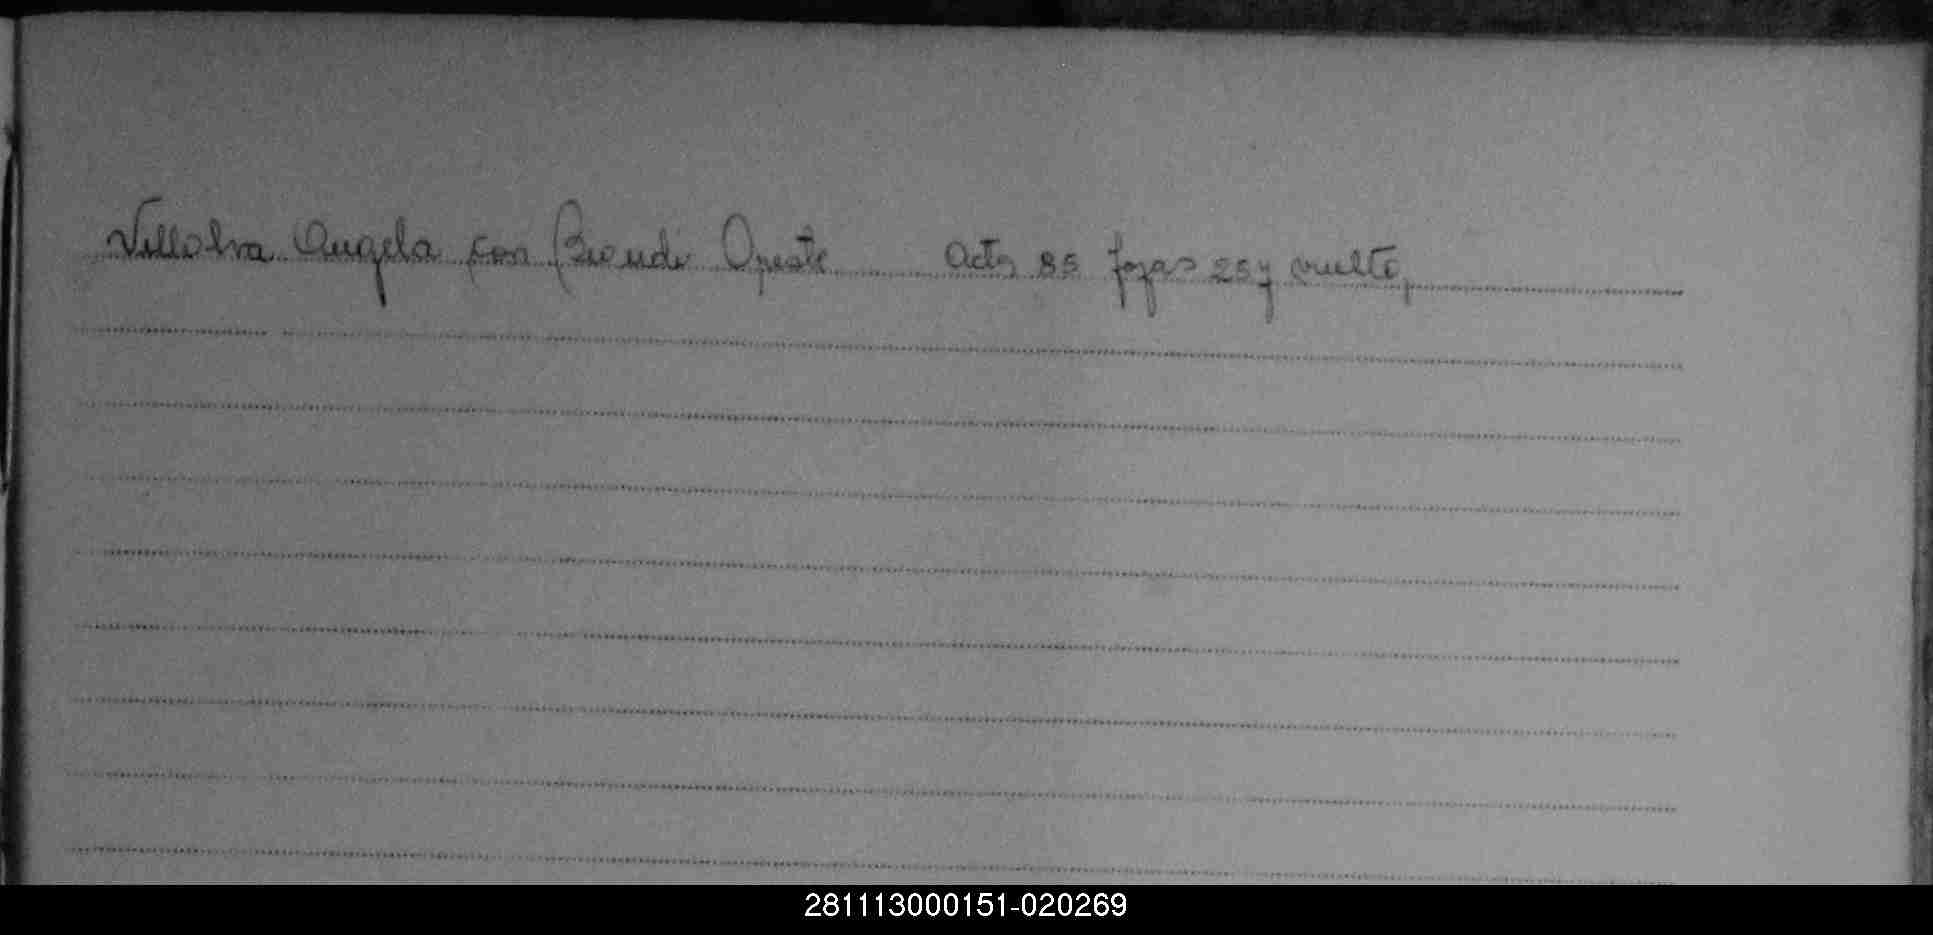 Villalva Angela con Biondi Oreste Acta 85 fojas 257 vuelta
281113000151-020269